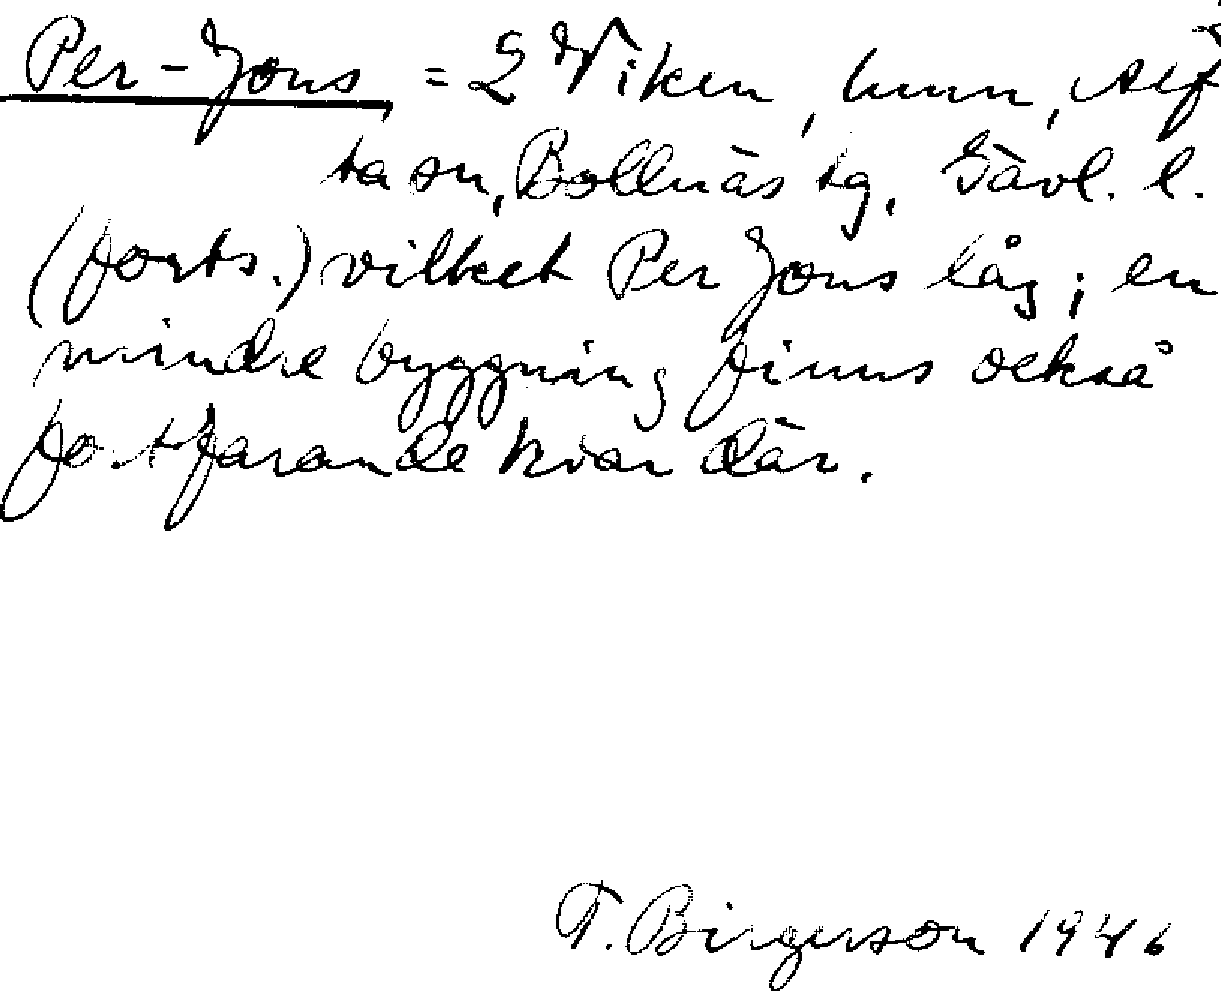 Per-Jons = 2 Viken, hmn, Alf
ta sn, Bollnäs tg, Gävl. l.
(forts.) vilket Per Jons låg; en
mindre byggning finns också
fortfarande kvar där.
T. Birgerson 1946